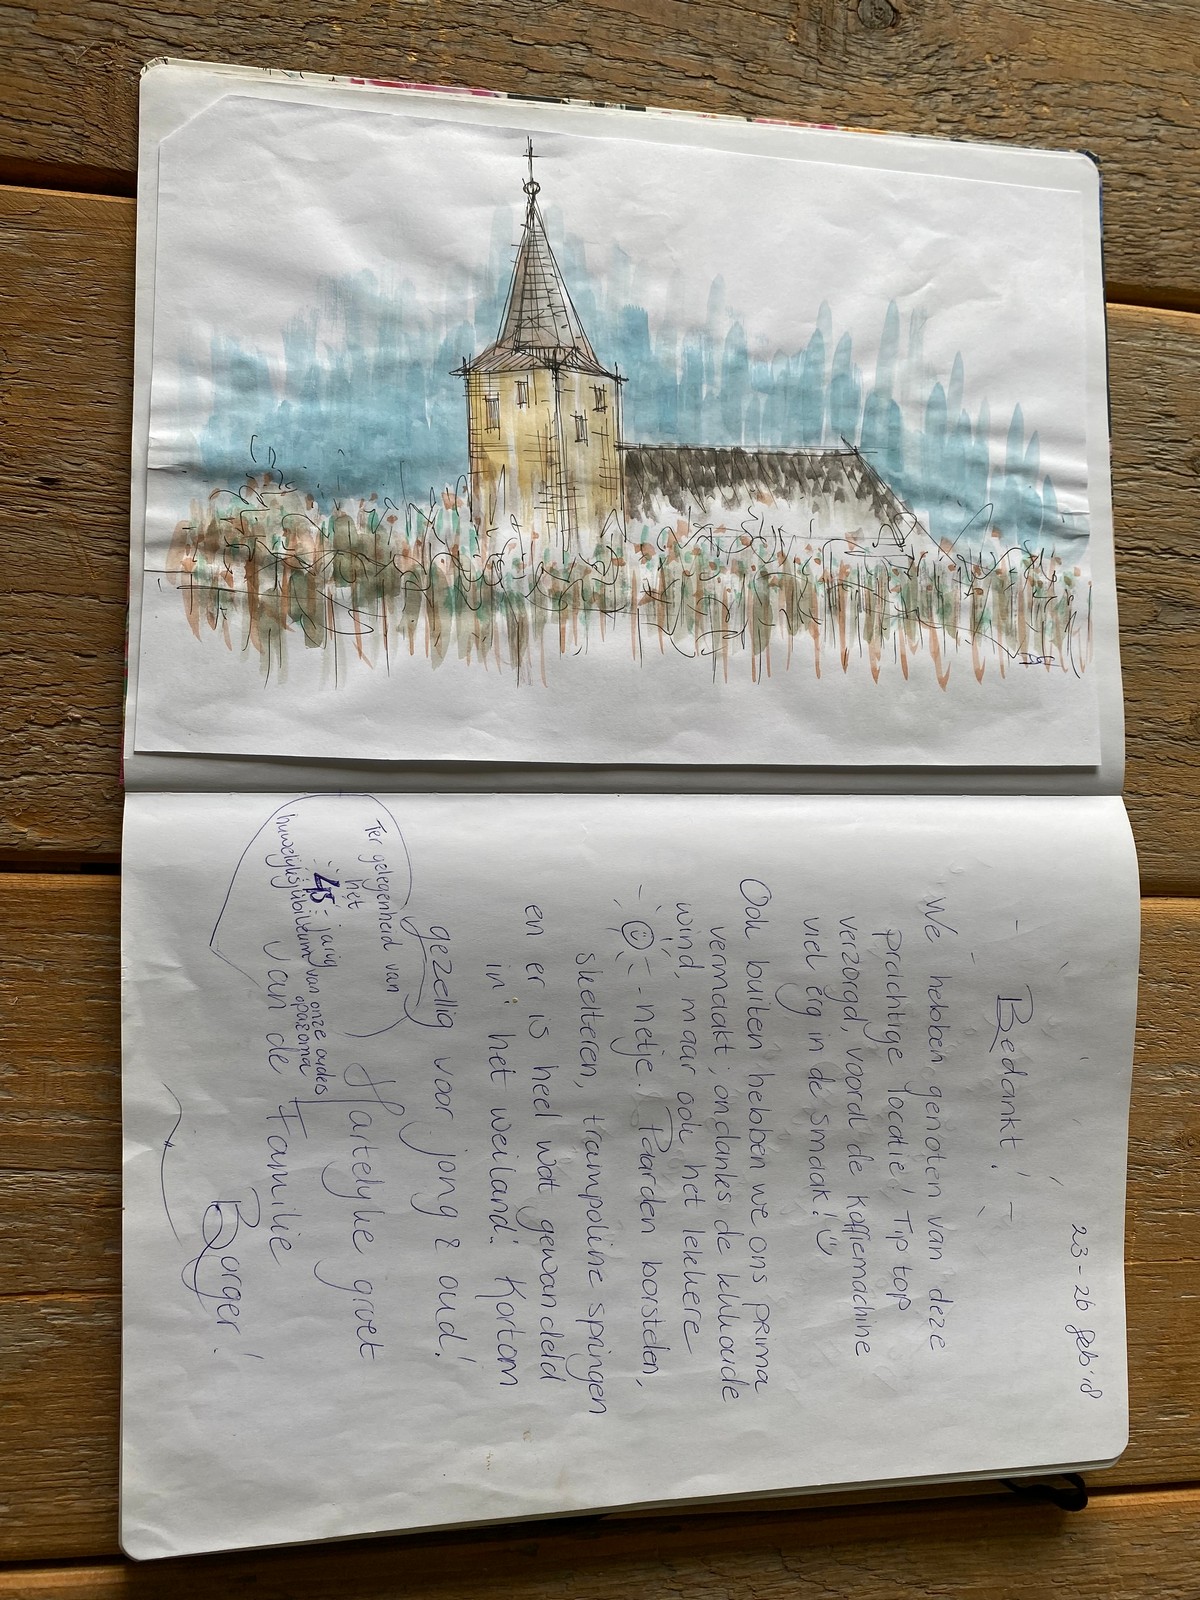 23-26 feb '18
- Bedankt! -
We hebben genoten van deze
prachtige locatie! Tip top
verzorgd, vooral de koffiemachine
viel erg in de smaak!
Ook buiten hebben we ons prima
vermaakt; ondanks de kkkoude
wind, maar ook het lekkere
- netje! Paarden borstelen,
skelteren, trampoline springen
en er is heel wat gewandeld
in het weiland. Kortom
gezellig voor jong & oud!
Hartelijke groet
van de Familie
Borger!
Ter gelegenheid van
het
45 - jarig
huwelijksjubileum van onze ouders
opa&oma